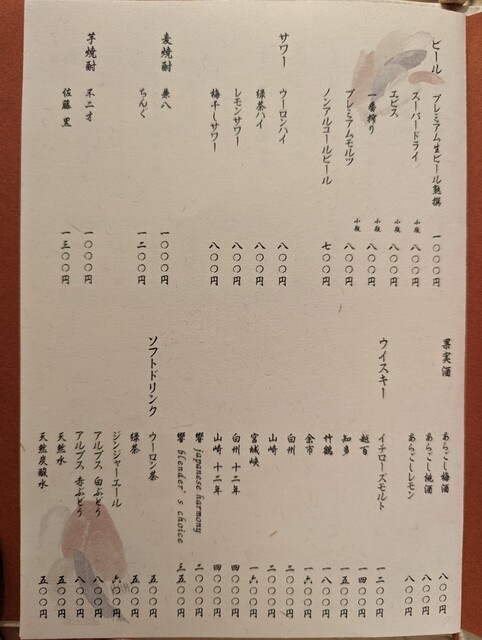 ビール
プレミアム生ビール熟撰 一〇〇〇円
スーパードライ 小瓶 八〇〇円
エビス 小瓶 八〇〇円
一番搾り 小瓶 八〇〇円
プレミアムモルツ 小瓶 八〇〇円
ノンアルコールビール 七〇〇円
サワー
ウーロンハイ 八〇〇円
緑茶ハイ 八〇〇円
レモンサワー 八〇〇円
梅干しサワー 八〇〇円
麦焼酎
兼八 一〇〇〇円
ちんぐ 一二〇〇円
芋焼酎
不二才 一〇〇〇円
佐藤 黒 一三〇〇円
果実酒
あらごし梅酒 八〇〇円
あらごし桃酒 八〇〇円
あらごしレモン 八〇〇円
ウイスキー
イチローズモルト 一二〇〇円
越百 一四〇〇円
知多 一五〇〇円
竹鶴 一八〇〇円
余市 一六〇〇円
白州 二〇〇〇円
山崎 二〇〇〇円
宮城峡 一六〇〇円
白州 十二年 四〇〇〇円
山崎 十二年 四〇〇〇円
響 japanese harmony 二〇〇〇円
響 blender's choice 三五〇〇円
ソフトドリンク
ウーロン茶 五〇〇円
緑茶 五〇〇円
ジンジャーエール 六〇〇円
アルプス 白ぶどう 八〇〇円
アルプス 赤ぶどう 八〇〇円
天然水 五〇〇円
天然炭酸水 五〇〇円